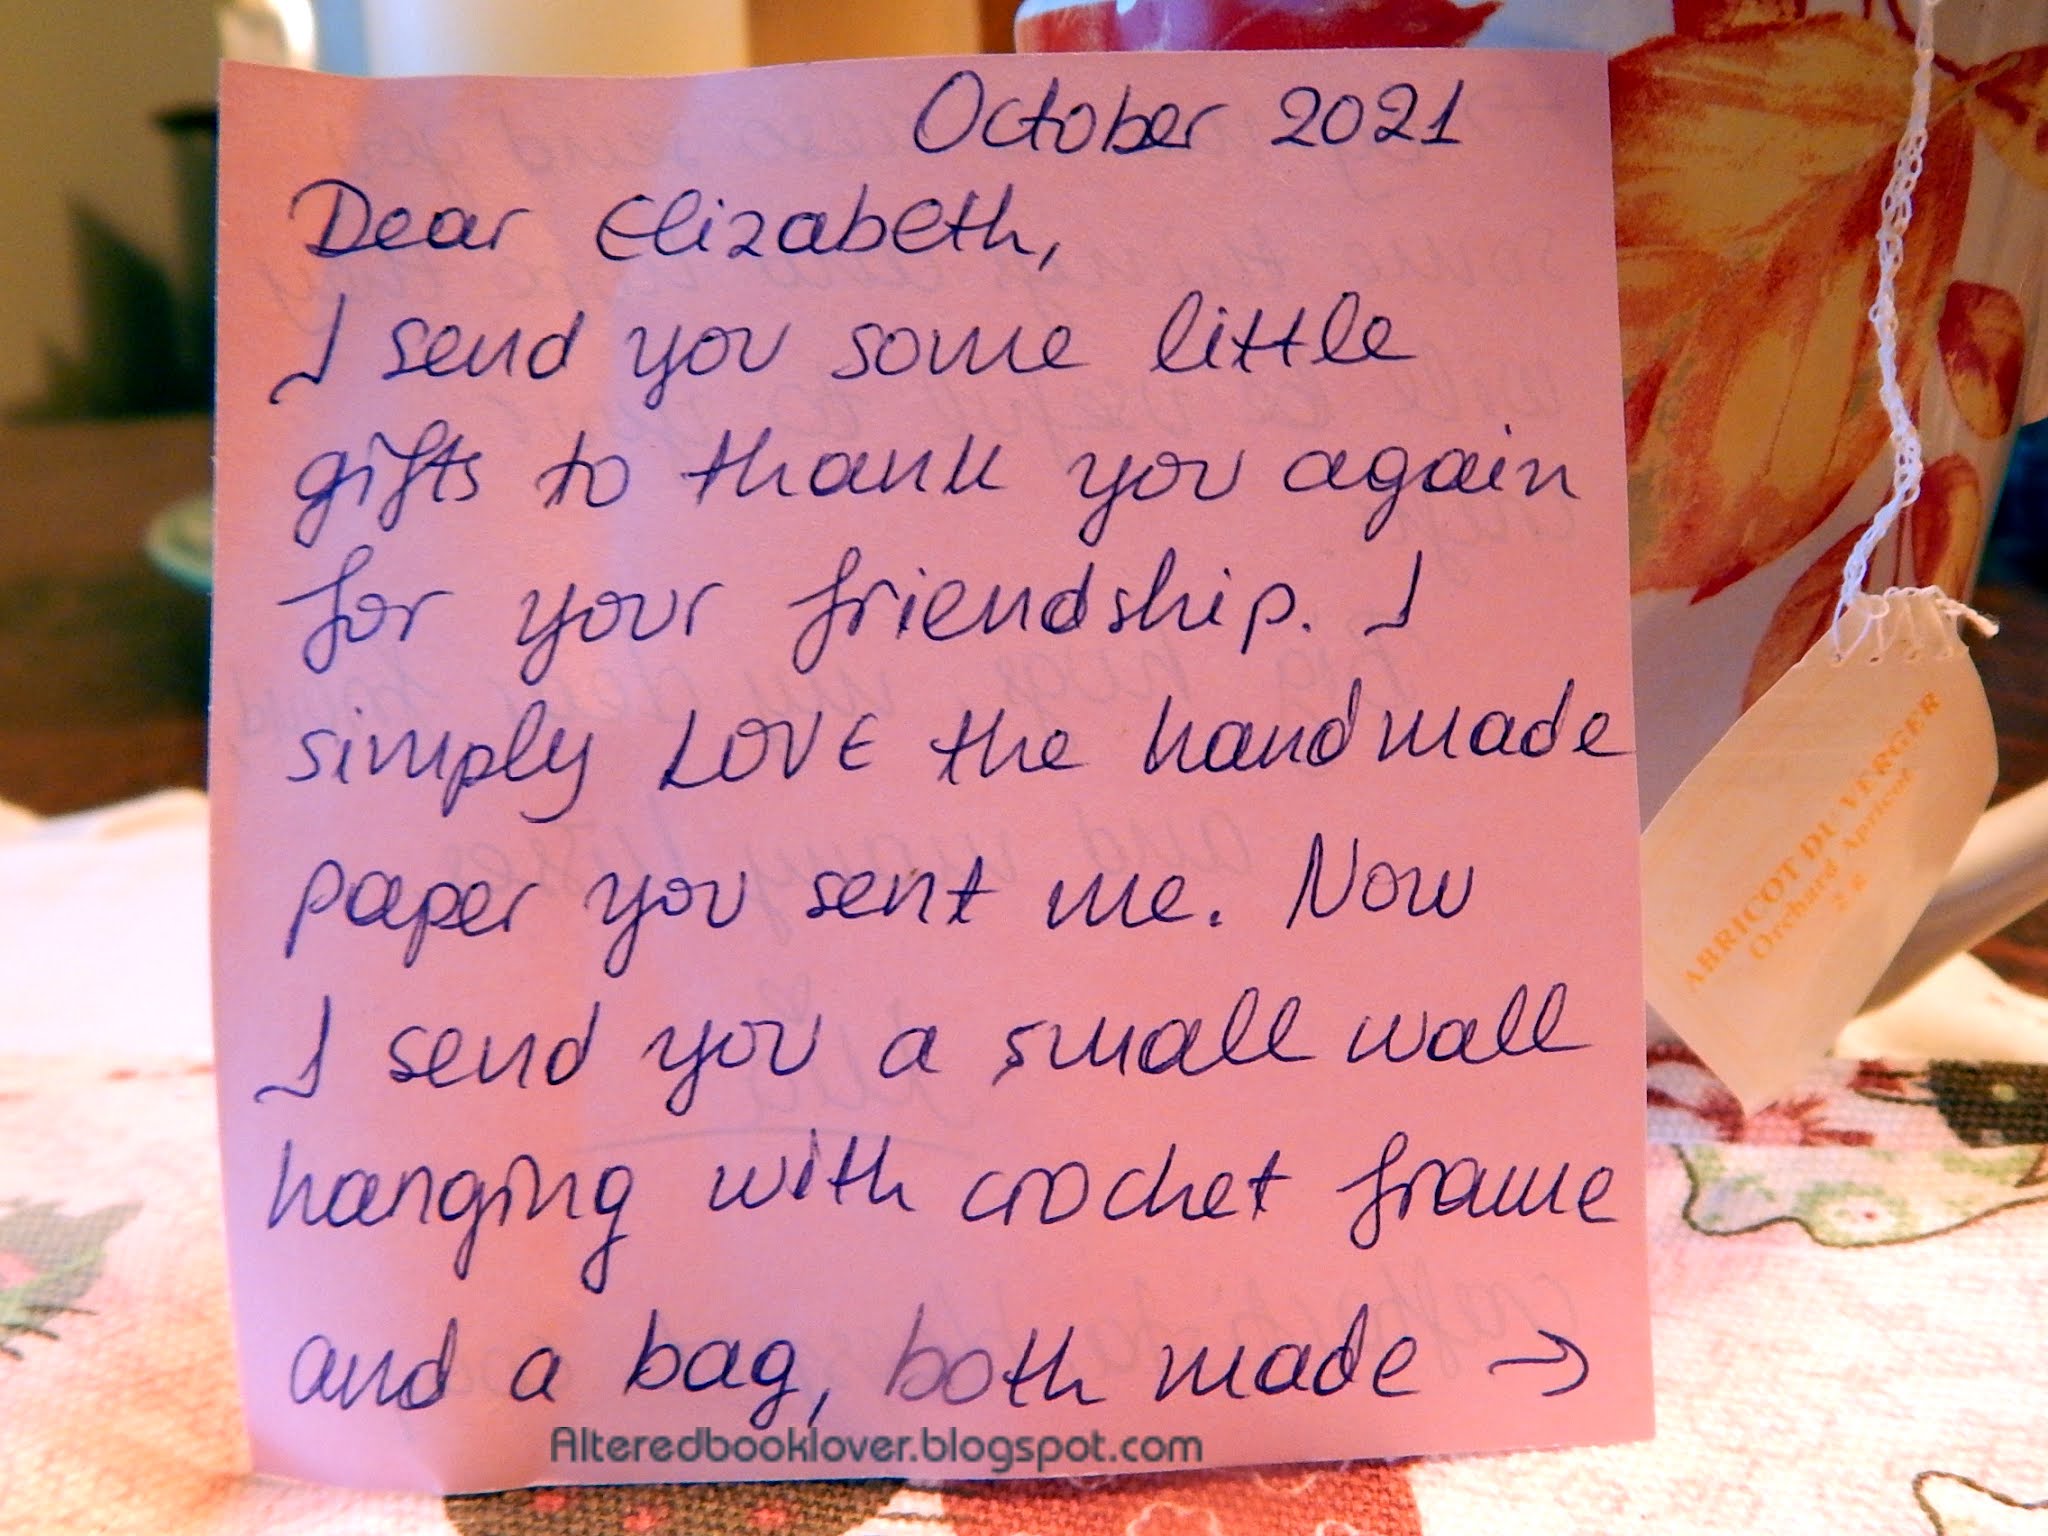 October 2021
Dear Elizabeth,
I send you some little
gifts to thank you again
for your friendship. I
simply LOVE the handmade
paper you sent me. Now
I send you a small wall
hanging with crochet frame
and a bag, both made →
Alteredbooklover.blogspot.com
ABRICOT DU VERGER
Orchard Apricot